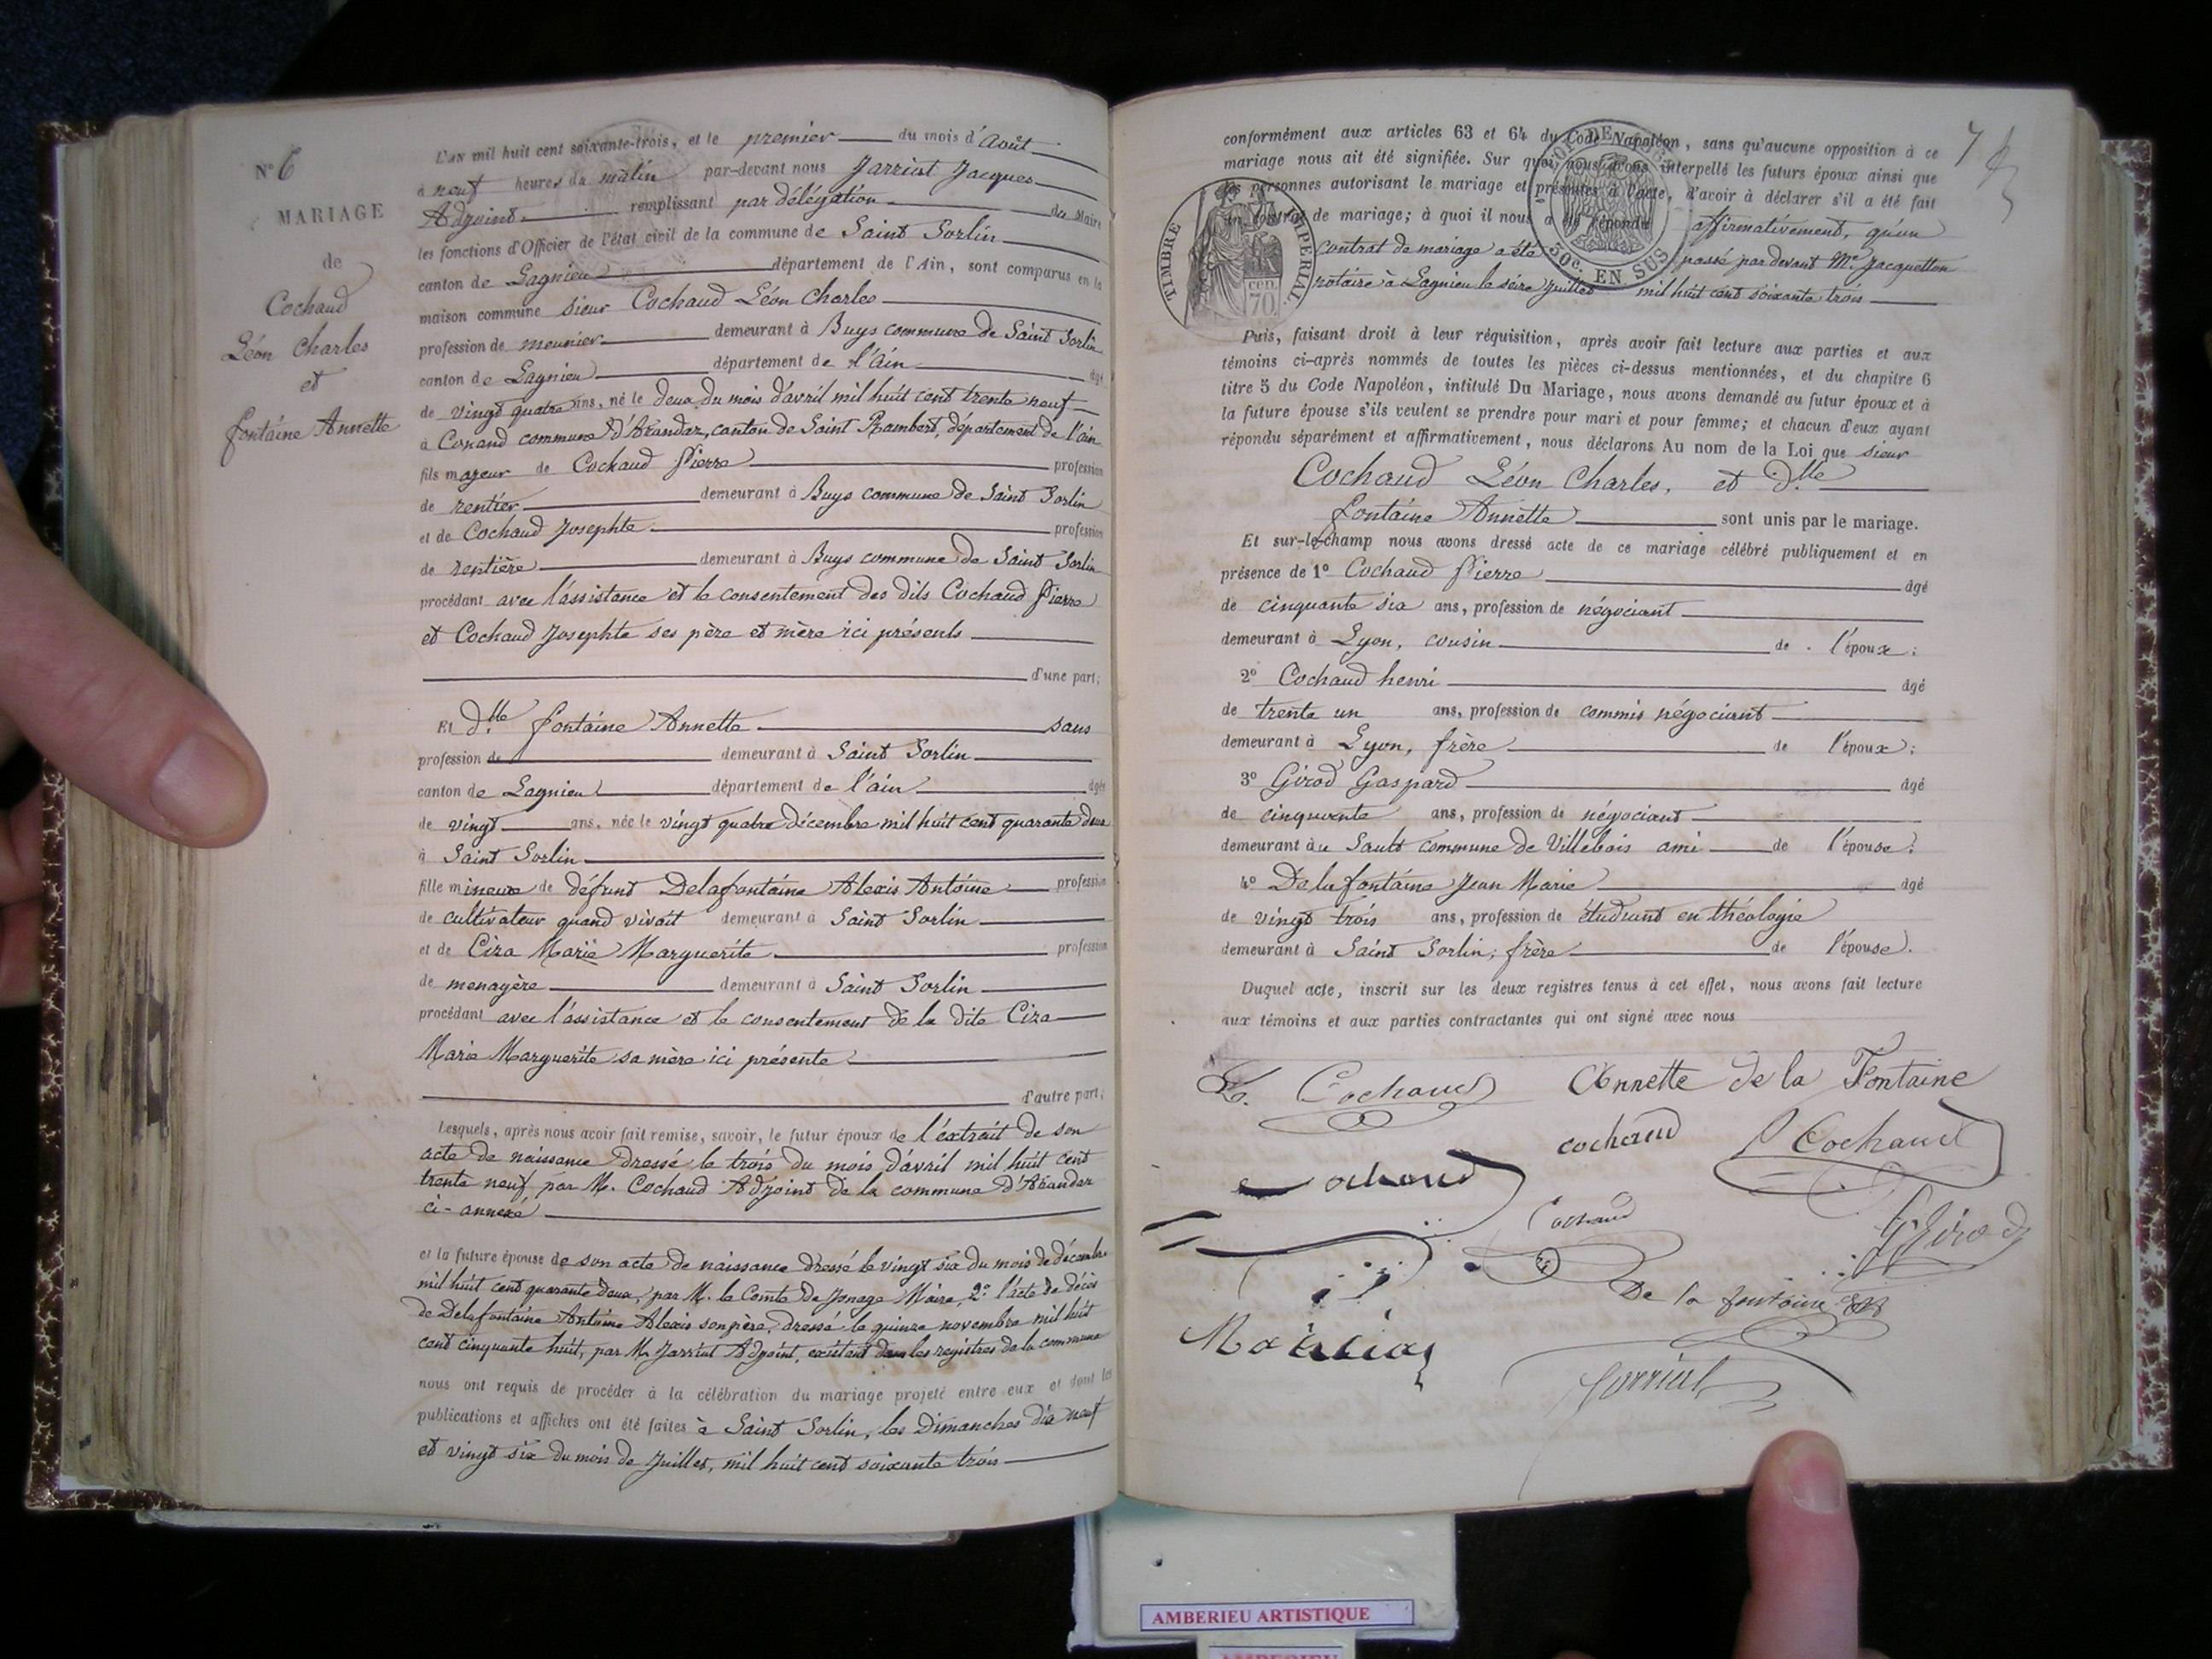 N° 6
MARIAGE
de
Cochaud
Léon Charles
et
fontaine Annette
L'AN mil huit cent soixante-trois, et le premier du mois d'Août
à neuf heures du matin par-devant nous Jarrint Jacques
Adjoint remplissant par délégation du Maire
les fonctions d'Officier de l'état civil de la commune de Saint Sorlin
canton de Lagnieu département de l'Ain, sont comparus en la
maison commune sieur Cochaud Léon Charles
profession de meunier demeurant à Buys commune de Saint Sorlin
canton de Lagnieu département de l'Ain âgé
de vingt quatre ans, né le deux du mois d'avril mil huit cent trente neuf
à Conand commune d'Arandaz, canton de Saint Rambert, département de l'ain
fils majeur de Cochaud Pierre profession
de rentier demeurant à Buys commune de Saint Sorlin
et de Cochaud Josephte profession
de rentière demeurant à Buys commune de Saint Sorlin
procédant avec l'assistance et le consentement des dits Cochaud Pierre
et Cochaud Josephte ses père et mère ici présents
d'une part;
Et dlle fontaine Annette sans
profession de demeurant à Saint Sorlin
canton de Lagnieu département de l'ain âgée
de vingt ans, née le vingt quatre décembre mil huit cent quarante deux
à Saint Sorlin
fille mineure de défunt Delafontaine Alexis Antoine profession
de cultivateur quand vivait demeurant à Saint Sorlin
et de Ciza Marie Marguerite profession
de menagère demeurant à Saint Sorlin
procédant avec l'assistance et le consentement de la dite Ciza
Marie Marguerite sa mère ici présente
d'autre part;
Lesquels, après nous avoir fait remise, savoir, le futur époux de l'extrait de son
acte de naissance dressé le trois du mois d'avril mil huit cent
trente neuf par M. Cochaud Adjoint de la commune d'Arandaz
ci-annexé
et la future épouse de son acte de naissance dressé le vingt six du mois de décembre
mil huit cent quarante deux, par M. le Comte de Jonage Maire, 2° l'acte de décès
de Delafontaine Antoine Alexis son père, dressé le quinze novembre mil huit
cent cinquante huit, par M. Jarrint Adjoint, existant dans les registres de la commune
nous ont requis de procéder à la célébration du mariage projeté entre eux et dont les
publications et affiches ont été faites à Saint Sorlin, les Dimanches dix neuf
et vingt six du mois de Juillet, mil huit cent soixante trois
7
conformément aux articles 63 et 64 du Code Napoléon, sans qu'aucune opposition à ce
mariage nous ait été signifiée. Sur quoi nous avons interpellé les futurs époux ainsi que
les personnes autorisant le mariage et présentes à l'acte, d'avoir à déclarer s'il a été fait
un contrat de mariage; à quoi il nous a été répondu affirmativement, qu'un
contrat de mariage a été passé par devant Me Jacquetton
notaire à Lagnieu le seize Juillet mil huit cent soixante trois
TIMBRE IMPERIAL
70 cen
50c. EN SUS
Puis, faisant droit à leur réquisition, après avoir fait lecture aux parties et aux
témoins ci-après nommés de toutes les pièces ci-dessus mentionnées, et du chapitre 6
titre 5 du Code Napoléon, intitulé Du Mariage, nous avons demandé au futur époux et à
la future épouse s'ils veulent se prendre pour mari et pour femme; et chacun d'eux ayant
répondu séparément et affirmativement, nous déclarons Au nom de la Loi que sieur
Cochaud Léon Charles, et dlle
fontaine Annette sont unis par le mariage.
Et sur-le-champ nous avons dressé acte de ce mariage célébré publiquement et en
présence de 1° Cochaud Pierre âgé
de cinquante six ans, profession de négociant
demeurant à Lyon, cousin de l'époux;
2° Cochaud henri âgé
de trente un ans, profession de commis négociant
demeurant à Lyon, frère de l'époux;
3° Girod Gaspard âgé
de cinquante ans, profession de négociant
demeurant au Sault commune de Villebois ami de l'épouse;
4° Delafontaine Jean Marie âgé
de vingt trois ans, profession de étudiant en théologie
demeurant à Saint Sorlin, frère de l'épouse.
Duquel acte, inscrit sur les deux registres tenus à cet effet, nous avons fait lecture
aux témoins et aux parties contractantes qui ont signé avec nous
L. Cochaud Annette de la Fontaine
cochaud P Cochaud
Cochaud
Cochaud G Girod
De la fontaine
Jarrint
AMBERIEU ARTISTIQUE
AMBERIEU